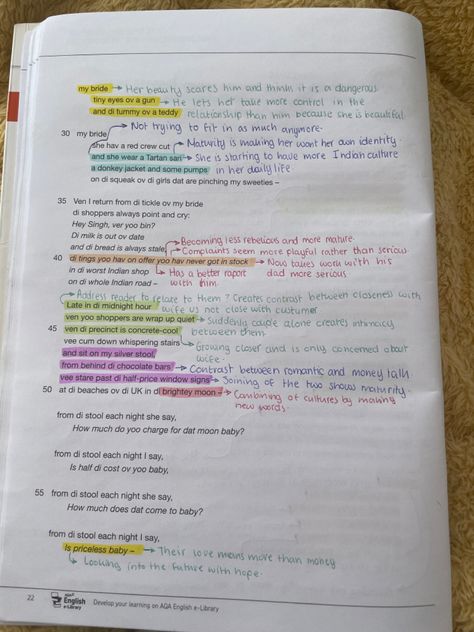 my bride → Her beauty scares him and thinks it is a dangerous
tiny eyes ov a gun → He lets her take more control in the
and di tummy ov a teddy relationship than him because she is beautiful.
Not trying to fit in as much anymore.
30 my bride
she hav a red crew cut → Maturity is making her want her own identity
and she wear a Tartan sari → She is starting to have more Indian culture
a donkey jacket and some pumps in her daily life
on di squeak ov di girls dat are pinching my sweeties –
35 Ven I return from di tickle ov my bride
di shoppers always point and cry:
Hey Singh, ver yoo bin?
Di milk is out ov date
and di bread is alvays stale, → Becoming less rebelious and more mature.
→ Complaints seem more playful rather than serious
40 di tings yoo hav on offer yoo hav never got in stock → Now takes work with his
in di worst Indian shop ↳ Has a better raport dad more serious
on di whole Indian road – with him
Address reader to relate to them? Creates contrast between closeness with
Late in di midnight hour wife vs not close with custumer
ven yoo shoppers are wrap up quiet → Suddenly couple alone creates intimacy
45 ven di precinct is concrete-cool between them
vee cum down whispering stairs → Growing closer and is only concerned about
and sit on my silver stool, wife.
from behind di chocolate bars → Contrast between romantic and money talk
vee stare past di half-price window signs → Joining of the two shows maturity.
50 at di beaches ov di UK in di brightey moon – → Combining of cultures by making
new words.
from di stool each night she say,
How much do yoo charge for dat moon baby?
from di stool each night I say,
Is half di cost ov yoo baby,
55 from di stool each night she say,
How much does dat come to baby?
from di stool each night I say,
Is priceless baby – → Their love means more than money
↳ Looking into the future with hope.
22 English e-Library Develop your learning on AQA English e-Library